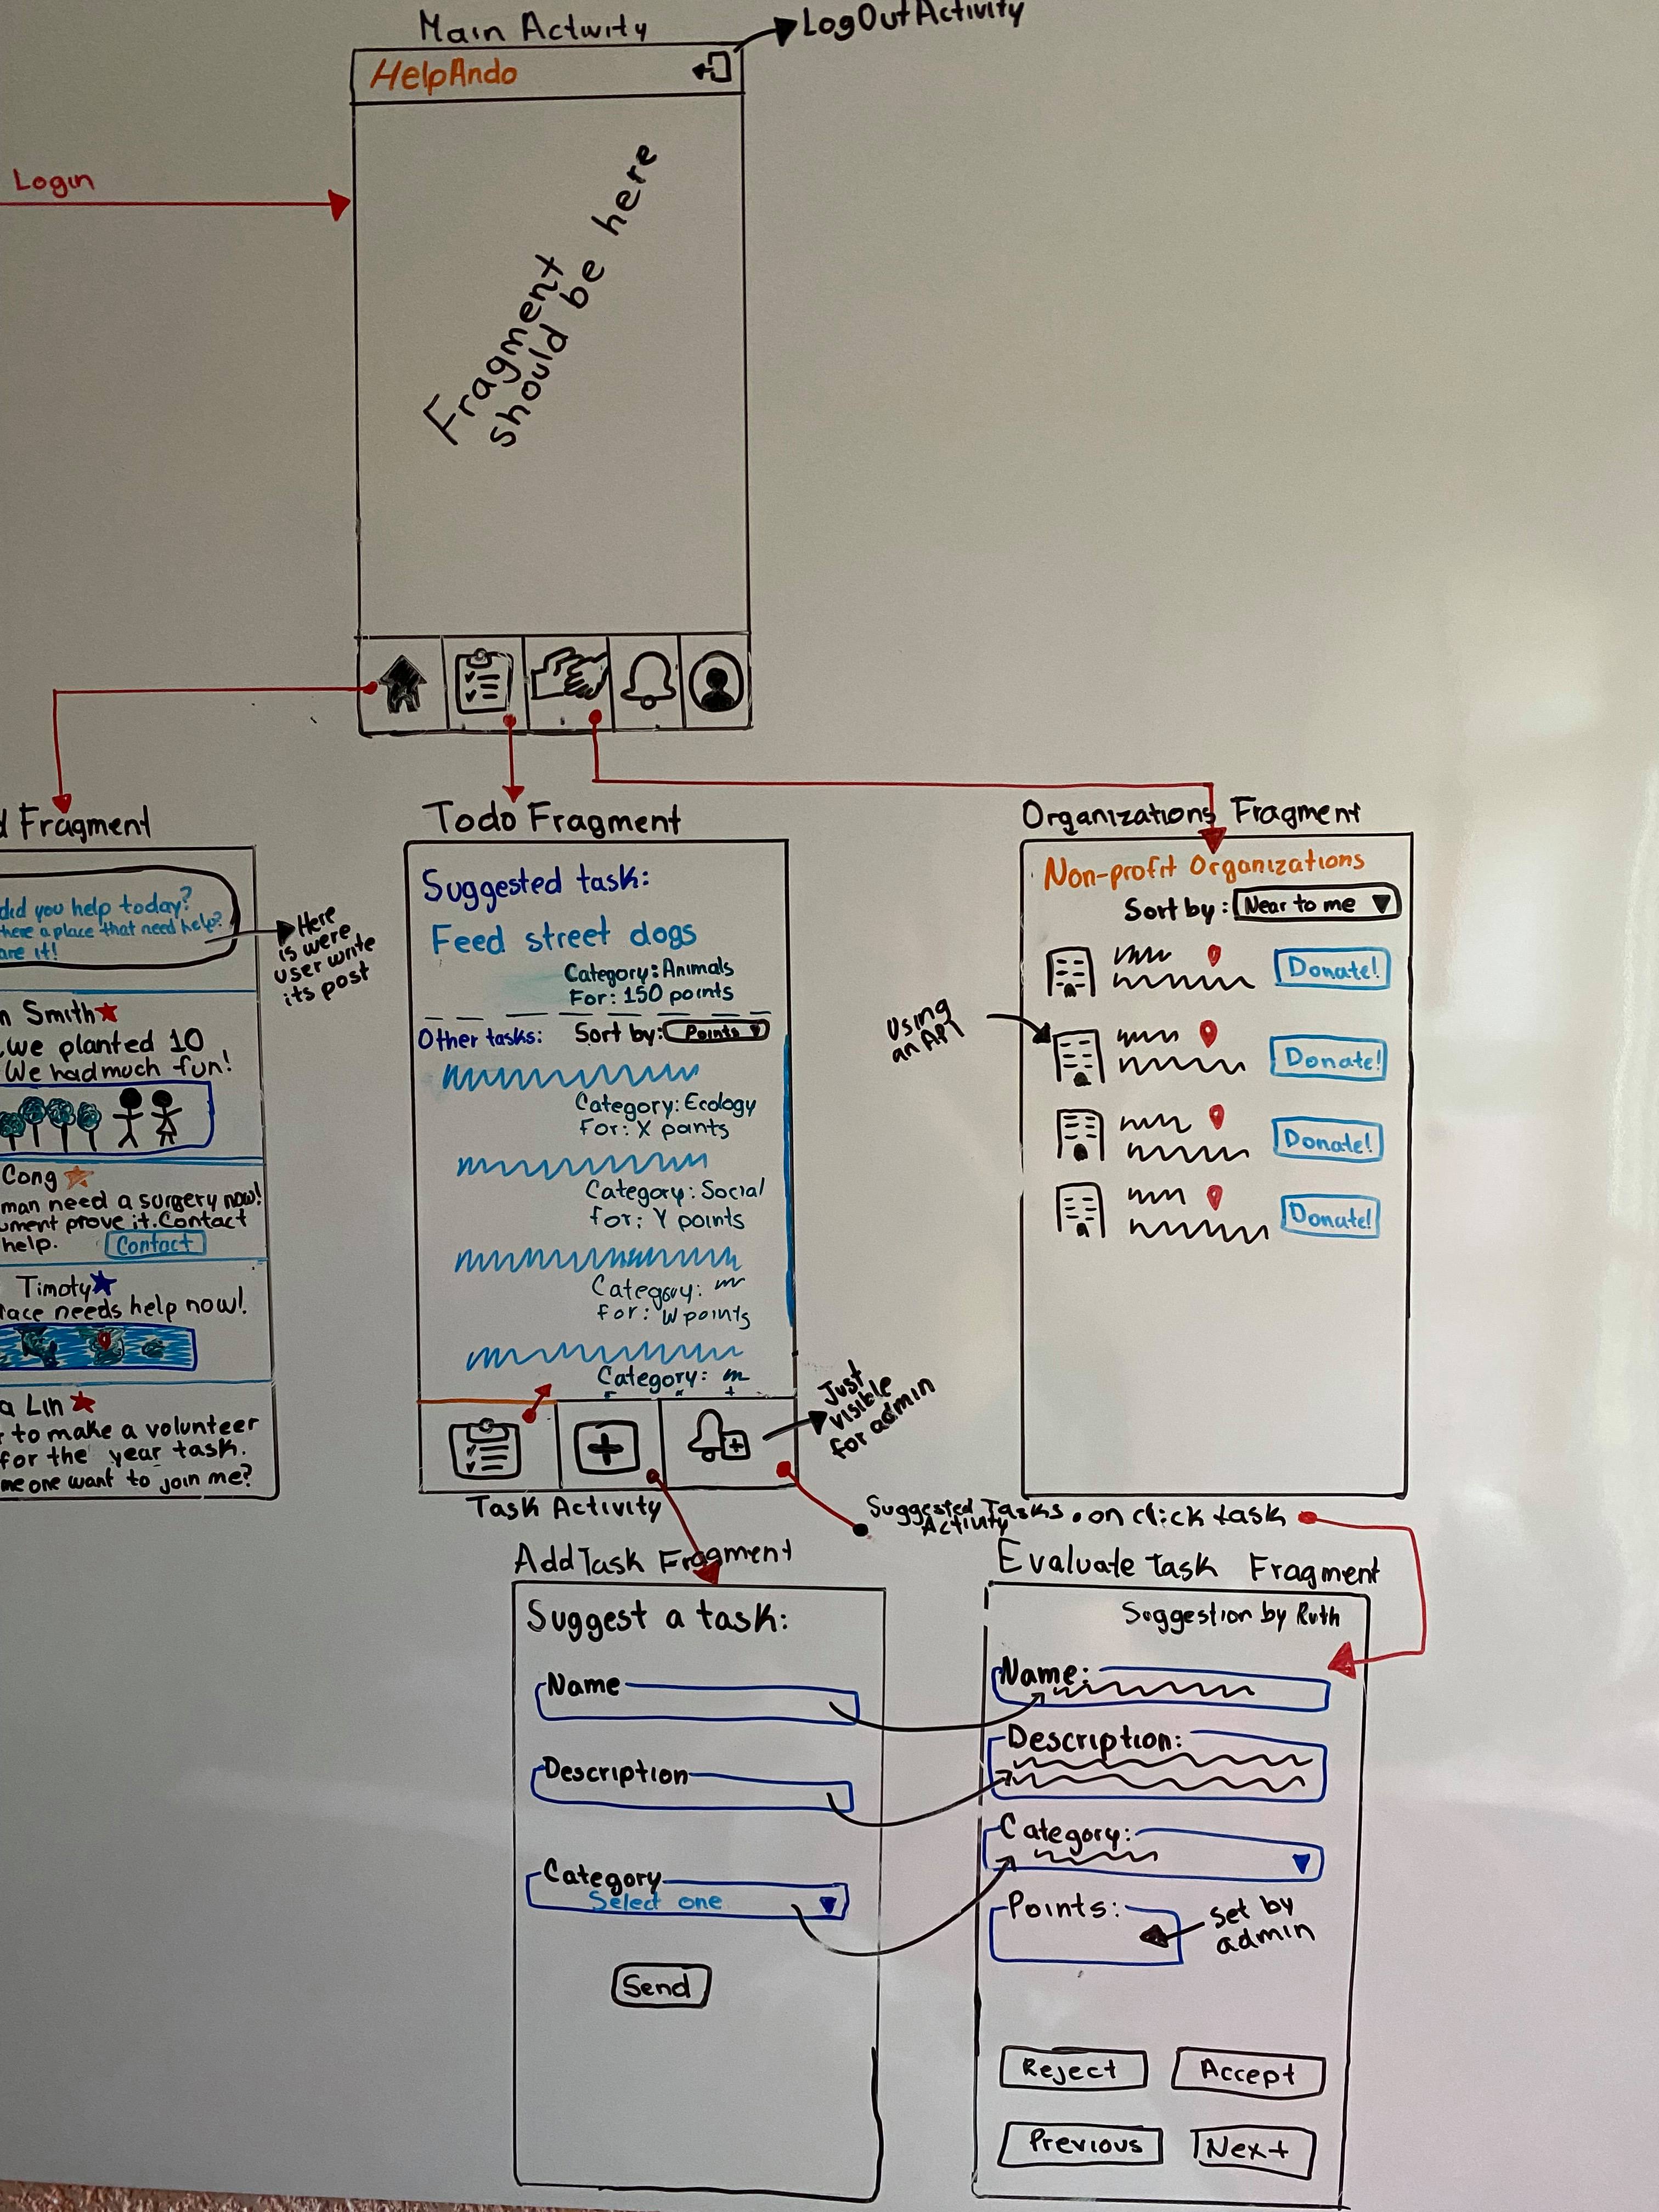 Main Activity
LogOutActivity
HelpAndo
Login
Fragment
should be here
Fragment
did you help today?
here a place that need help?
are it!
Here
is were
user write
its post
Smith
we planted 10
We had much fun!
Cong
man need a surgery now!
ument prove it. Contact
help.
Contact
Timoty
needs help now!
Lin
to make a volunteer
for the year task.
one want to join me?
Todo Fragment
Suggested task:
Feed street dogs
Category: Animals
For: 150 points
Other tasks: Sort by: Points
Category: Ecology
For: X points
Category: Social
for: Y points
Category:
for: W points
Category:
Just
visible
for admin
Task Activity
Organizations Fragment
Non-profit Organizations
Sort by: Near to me
Donate!
Using
an API
Donate!
Donate!
Donate!
Suggested Tasks
Activity
on click task
AddTask Fragment
Suggest a task:
Name
Description
Category
Select one
Send
Evaluate task Fragment
Suggestion by Ruth
Name:
Description:
Category:
Points:
set by
admin
Reject
Accept
Previous
Next